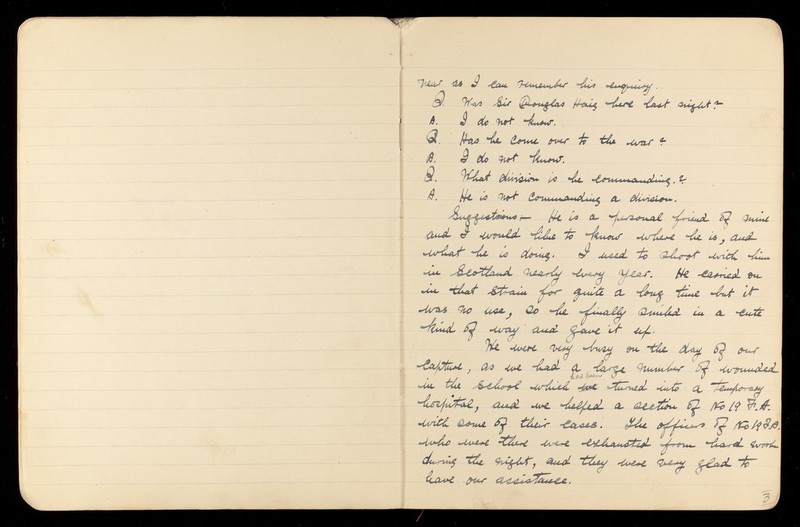 near as I can remember his enquiry.
Q. Was Sir Douglas Haig here last night?
A. I do not know.
Q. Has he come over to the war?
A. I do not know.
Q. What division is he commanding.?
A. He is not commanding a division.
Suggestions:— He is a personal friend of mine
and I would like to know where he is, and
what he is doing. I used to shoot with him
in Scotland nearly every year. He carried on
in that strain for quite a long time but it
was no use, so he finally smiled in a cute
kind of way and gave it up.
We were very busy on the day of our
capture, as we had a large number of wounded
in the school which we had turned into a temporary
hospital, and we helped a section of No 19 F.A.
with some of their cases. The officers of No 19 F.A.
who were there were exhausted from hard work
during the night, and they were very glad to
have our assistance.
3